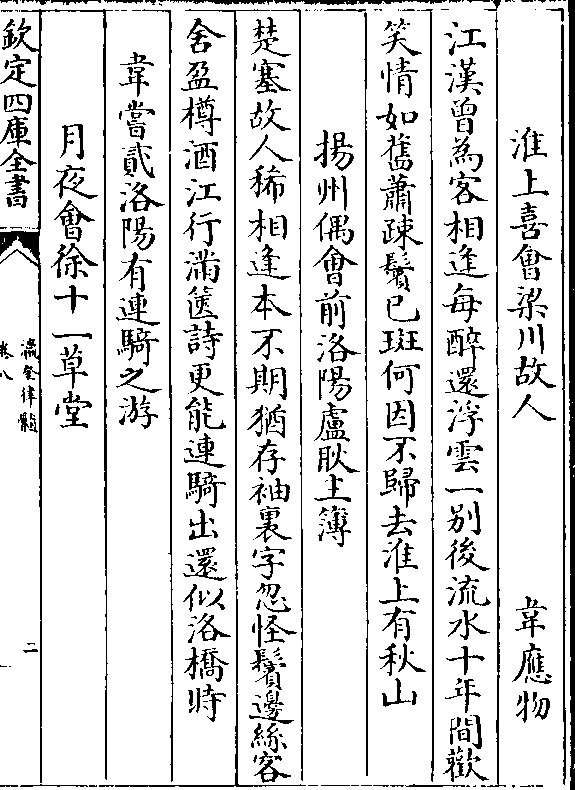 淮上喜會梁川故人　韋應物
江漢曾為客相逢每醉還浮雲一别後流水十年間歡
笑情如舊蕭踈鬢已斑何因不歸去淮上有秋山
揚州偶會前洛陽盧耿主簿
楚塞故人稀相逢本不期猶存袖裏字忽怪鬢邊絲客
舍盈樽酒江行滿篋詩更能連騎出還似洛橋時
韋嘗貳洛陽有連騎之游
月夜會徐十一草堂
欽定四庫全書
瀛奎律髓
卷八
二